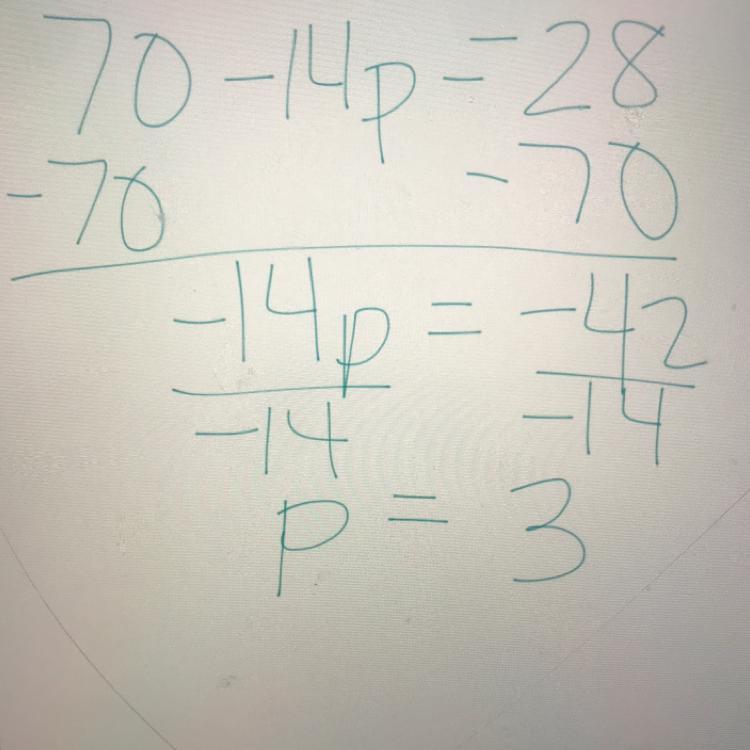 70 - 14p = -28
-70 -70
-14p = -42
-14 -14
p = 3